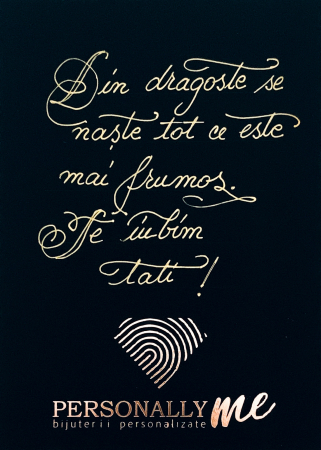 Din dragoste se
naște tot ce este
mai frumos.
Te iubim
tati!
PERSONALLY me
bijuterii personalizate